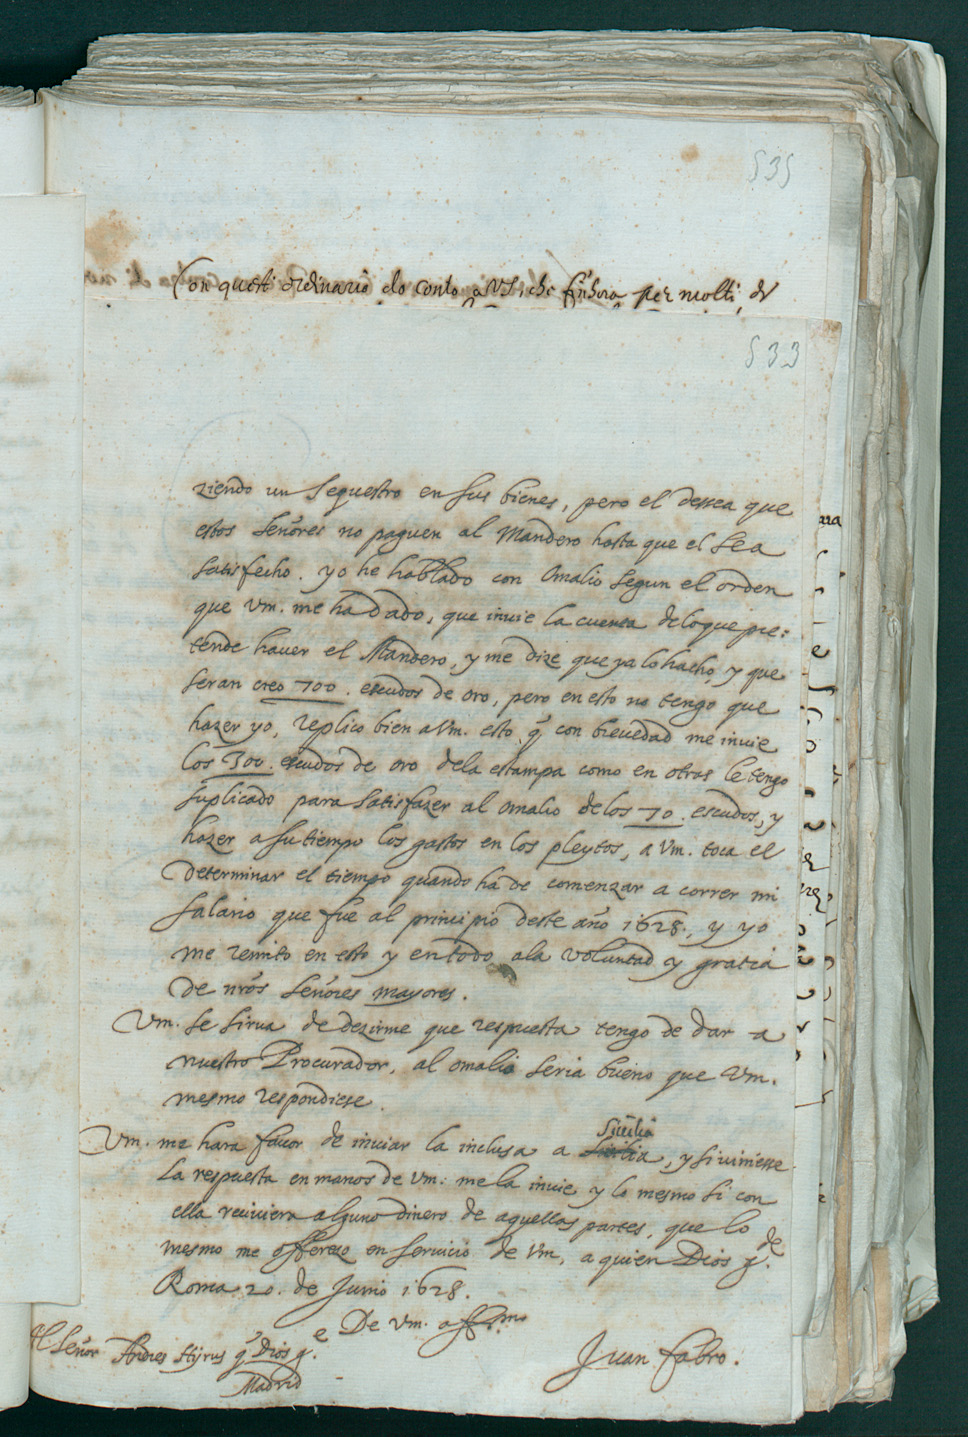 535
Con questi ordinario do conto a VS, che sin'hora per molti, et
533
ziendo un sequestro en sus bienes, pero el dessea que
estos señores no paguen al Mandero hasta que el sea
satisfecho. yo he hablado con Omalio segun el orden
que Vm. me ha dado, que invie la cuenta de lo que pre:
tende hauer el Mandero, y me dize que ya lo hacho, y que
seran creo 700. escudos de oro, pero en esto no tengo que
hazer yo, replico bien a Vm. esto q̃ con brevedad me invie
los 300. escudos de oro dela estampa como en otras le tengo
suplicado para satisfazer al Omalio de los 70. escudos, y
hazer a su tiempo los gastos en los pleytos, a Vm. toca el
determinar el tiempo quando ha de comenzar a correr mi
salario que fue al principio deste año 1628., y yo
me remito en esto y en todo ala voluntad y gratia
de nr̃os señores mayores.
Vm. se sirva de dezirme que respuesta tengo de dar a
nuestro Procurador, al Omalio seria bueno que Vm.
mesmo respondiese.
Vm. me hara favor de inviar la inclusa a Sicilia, y si viniesse
la respuesta en manos de Vm: me la invie y lo mesmo si con
ella reciviera alguno dinero de aquellas partes, que lo
mesmo me offerezo en servicio de Vm, a quien Dios g.de
Roma 20. de Junio 1628.
De Vm. aff.mo
Juan Fabro.
Al Señor Andres Stijrus q̃ Dios g.e
Madrid